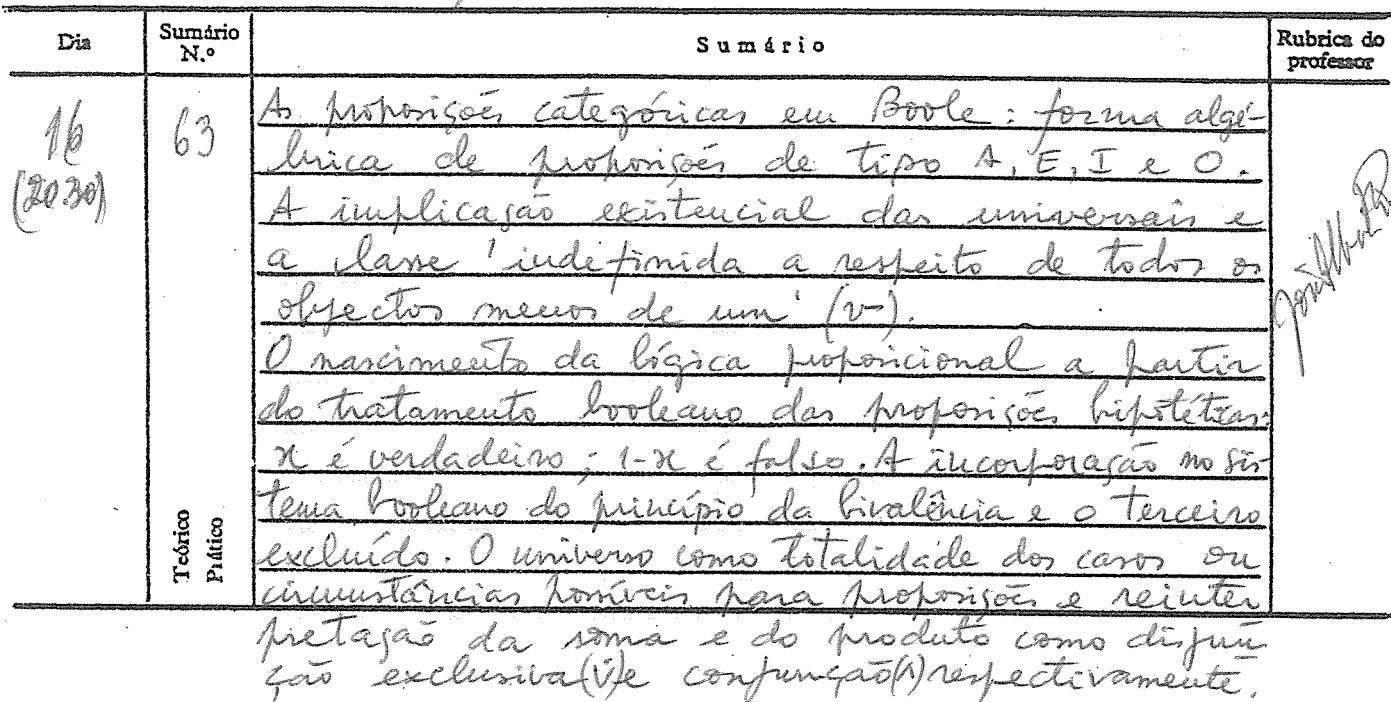 Dia Sumário N.º Sumário Rubrica do professor
16 (20.30) 63
As proposições categóricas em Boole: forma algé-
brica de proposições de tipo A, E, I e O.
A implicação existencial das universais e
a classe 'indefinida a respeito de todos os
objectos menos de um' (v).
O nascimento da lógica proposicional a partir
do tratamento booleano das proposições hipotéticas:
x é verdadeiro; 1-x é falso. A incorporação no sis-
tema booleano do princípio da bivalência e o terceiro
excluído. O universo como totalidade dos casos ou
circunstâncias possíveis para proposições e reinter
pretação da soma e do produto como disjun
ção exclusiva (v̇) e conjunção (∧) respectivamente.
Teórico
Prático